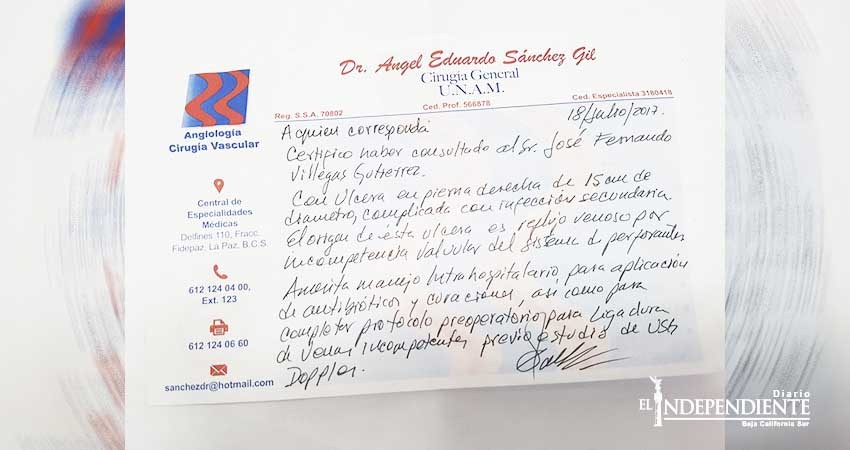 Dr. Angel Eduardo Sánchez Gil
Cirugía General
U.N.A.M.
Reg. S.S.A. 70802
Ced. Prof. 566878
Ced. Especialista 3180418
Angiología
Cirugía Vascular
Central de
Especialidades
Médicas
Delfines 110, Fracc.
Fidepaz, La Paz, B.C.S.
612 124 04 00,
Ext. 123
612 124 06 60
sanchezdr@hotmail.com
18/Julio/2017.
A quien corresponda
Certifico haber consultado al Sr. José Fernando
Villegas Gutierrez.
Con Ulcera en pierna derecha de 15 cm de
diametro, complicada con infección secundaria.
El origen de ésta ulcera es reflujo venoso por
incompetencia valvular del sistema de perforantes
Amerita manejo Intrahospitalario para aplicación
de antibióticos y curaciones, así como para
completar protocolo preoperatorio para Ligadura
de venas incompetentes previo estudio de USG
Doppler.
Diario
EL INDEPENDIENTE
Baja California Sur